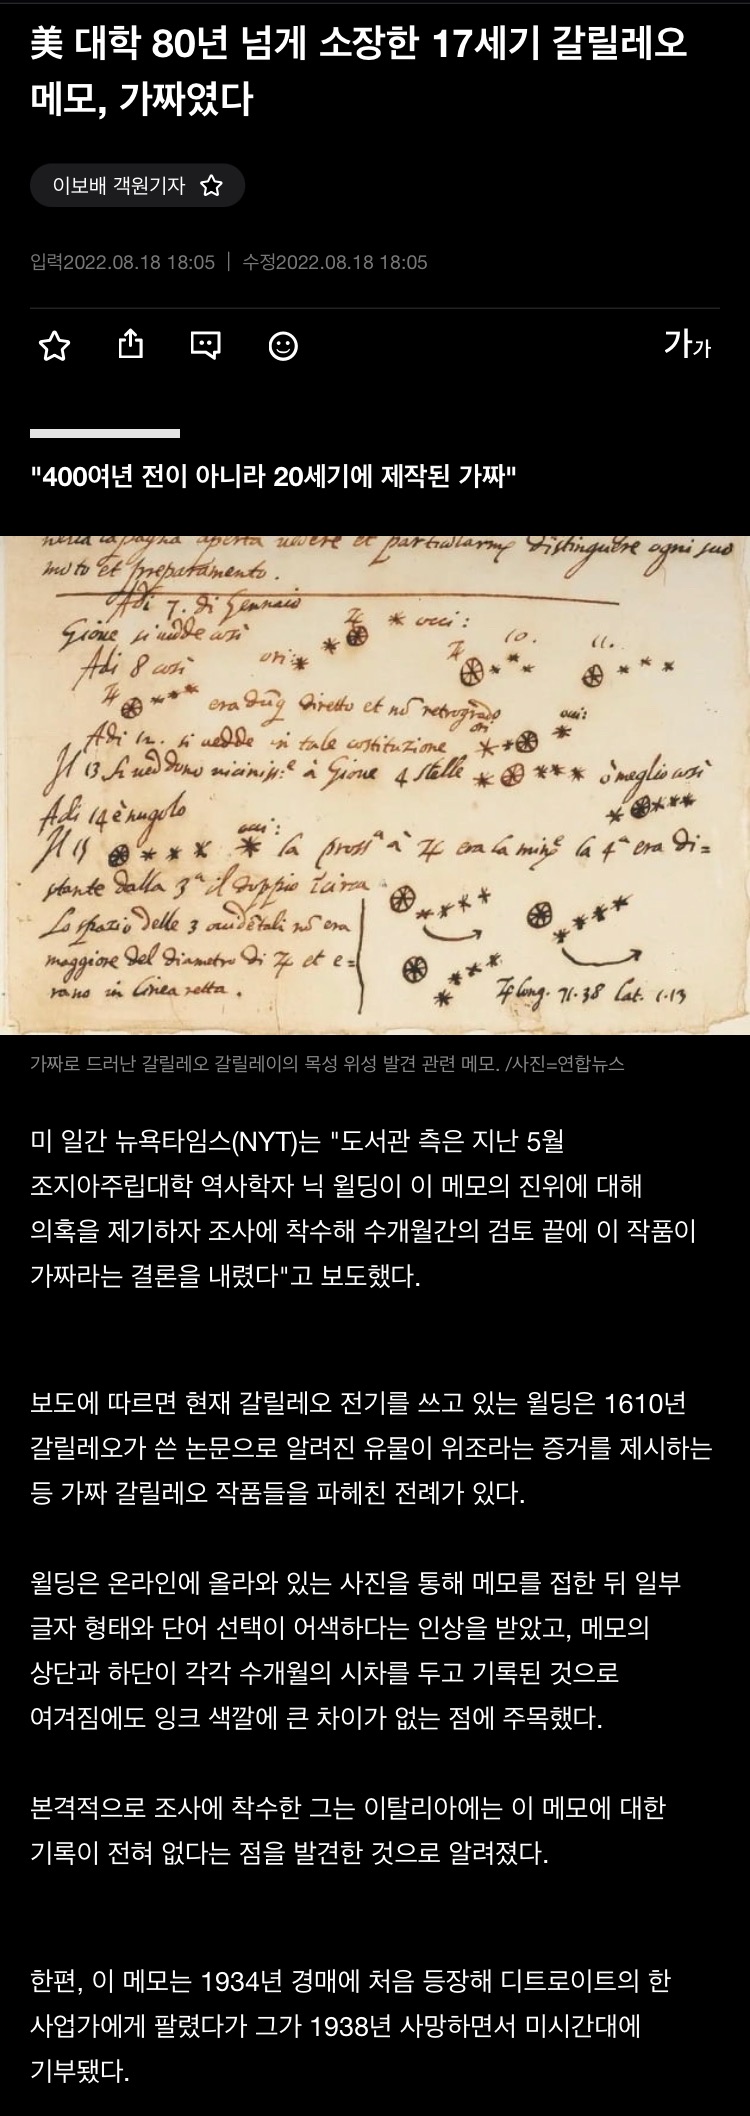 美 대학 80년 넘게 소장한 17세기 갈릴레오
메모, 가짜였다
이보배 객원기자
입력2022.08.18 18:05 | 수정2022.08.18 18:05
가가
"400여년 전이 아니라 20세기에 제작된 가짜"
aperta vedere et particularmẽ distinguere ogni suo
moto et preparamento.
Adi 7. di Gennaio
Gione si vedde così
occ:
Adi 8 così
ori:
10.
11.
era dũq diretto et nõ retrogrado
Adi 12. si vedde in tale costituzione
ori:
occ:
Il 13 si veddono viciniss:e à Gione 4 stelle
ò meglio così
Adi 14 è nugolo
Il 15
occ:
la prossa à ♃ era la mine la 4a era di=
stante dalla 3a il doppio ĩcirca
Lo spazio delle 3 occidẽtali nõ era
maggiore del diametro di ♃ et e=
rano in linea retta.
♃ long. 71.38 Lat. 1.13
가짜로 드러난 갈릴레오 갈릴레이의 목성 위성 발견 관련 메모. /사진=연합뉴스
미 일간 뉴욕타임스(NYT)는 "도서관 측은 지난 5월
조지아주립대학 역사학자 닉 윌딩이 이 메모의 진위에 대해
의혹을 제기하자 조사에 착수해 수개월간의 검토 끝에 이 작품이
가짜라는 결론을 내렸다"고 보도했다.
보도에 따르면 현재 갈릴레오 전기를 쓰고 있는 윌딩은 1610년
갈릴레오가 쓴 논문으로 알려진 유물이 위조라는 증거를 제시하는
등 가짜 갈릴레오 작품들을 파헤친 전례가 있다.
윌딩은 온라인에 올라와 있는 사진을 통해 메모를 접한 뒤 일부
글자 형태와 단어 선택이 어색하다는 인상을 받았고, 메모의
상단과 하단이 각각 수개월의 시차를 두고 기록된 것으로
여겨짐에도 잉크 색깔에 큰 차이가 없는 점에 주목했다.
본격적으로 조사에 착수한 그는 이탈리아에는 이 메모에 대한
기록이 전혀 없다는 점을 발견한 것으로 알려졌다.
한편, 이 메모는 1934년 경매에 처음 등장해 디트로이트의 한
사업가에게 팔렸다가 그가 1938년 사망하면서 미시간대에
기부됐다.